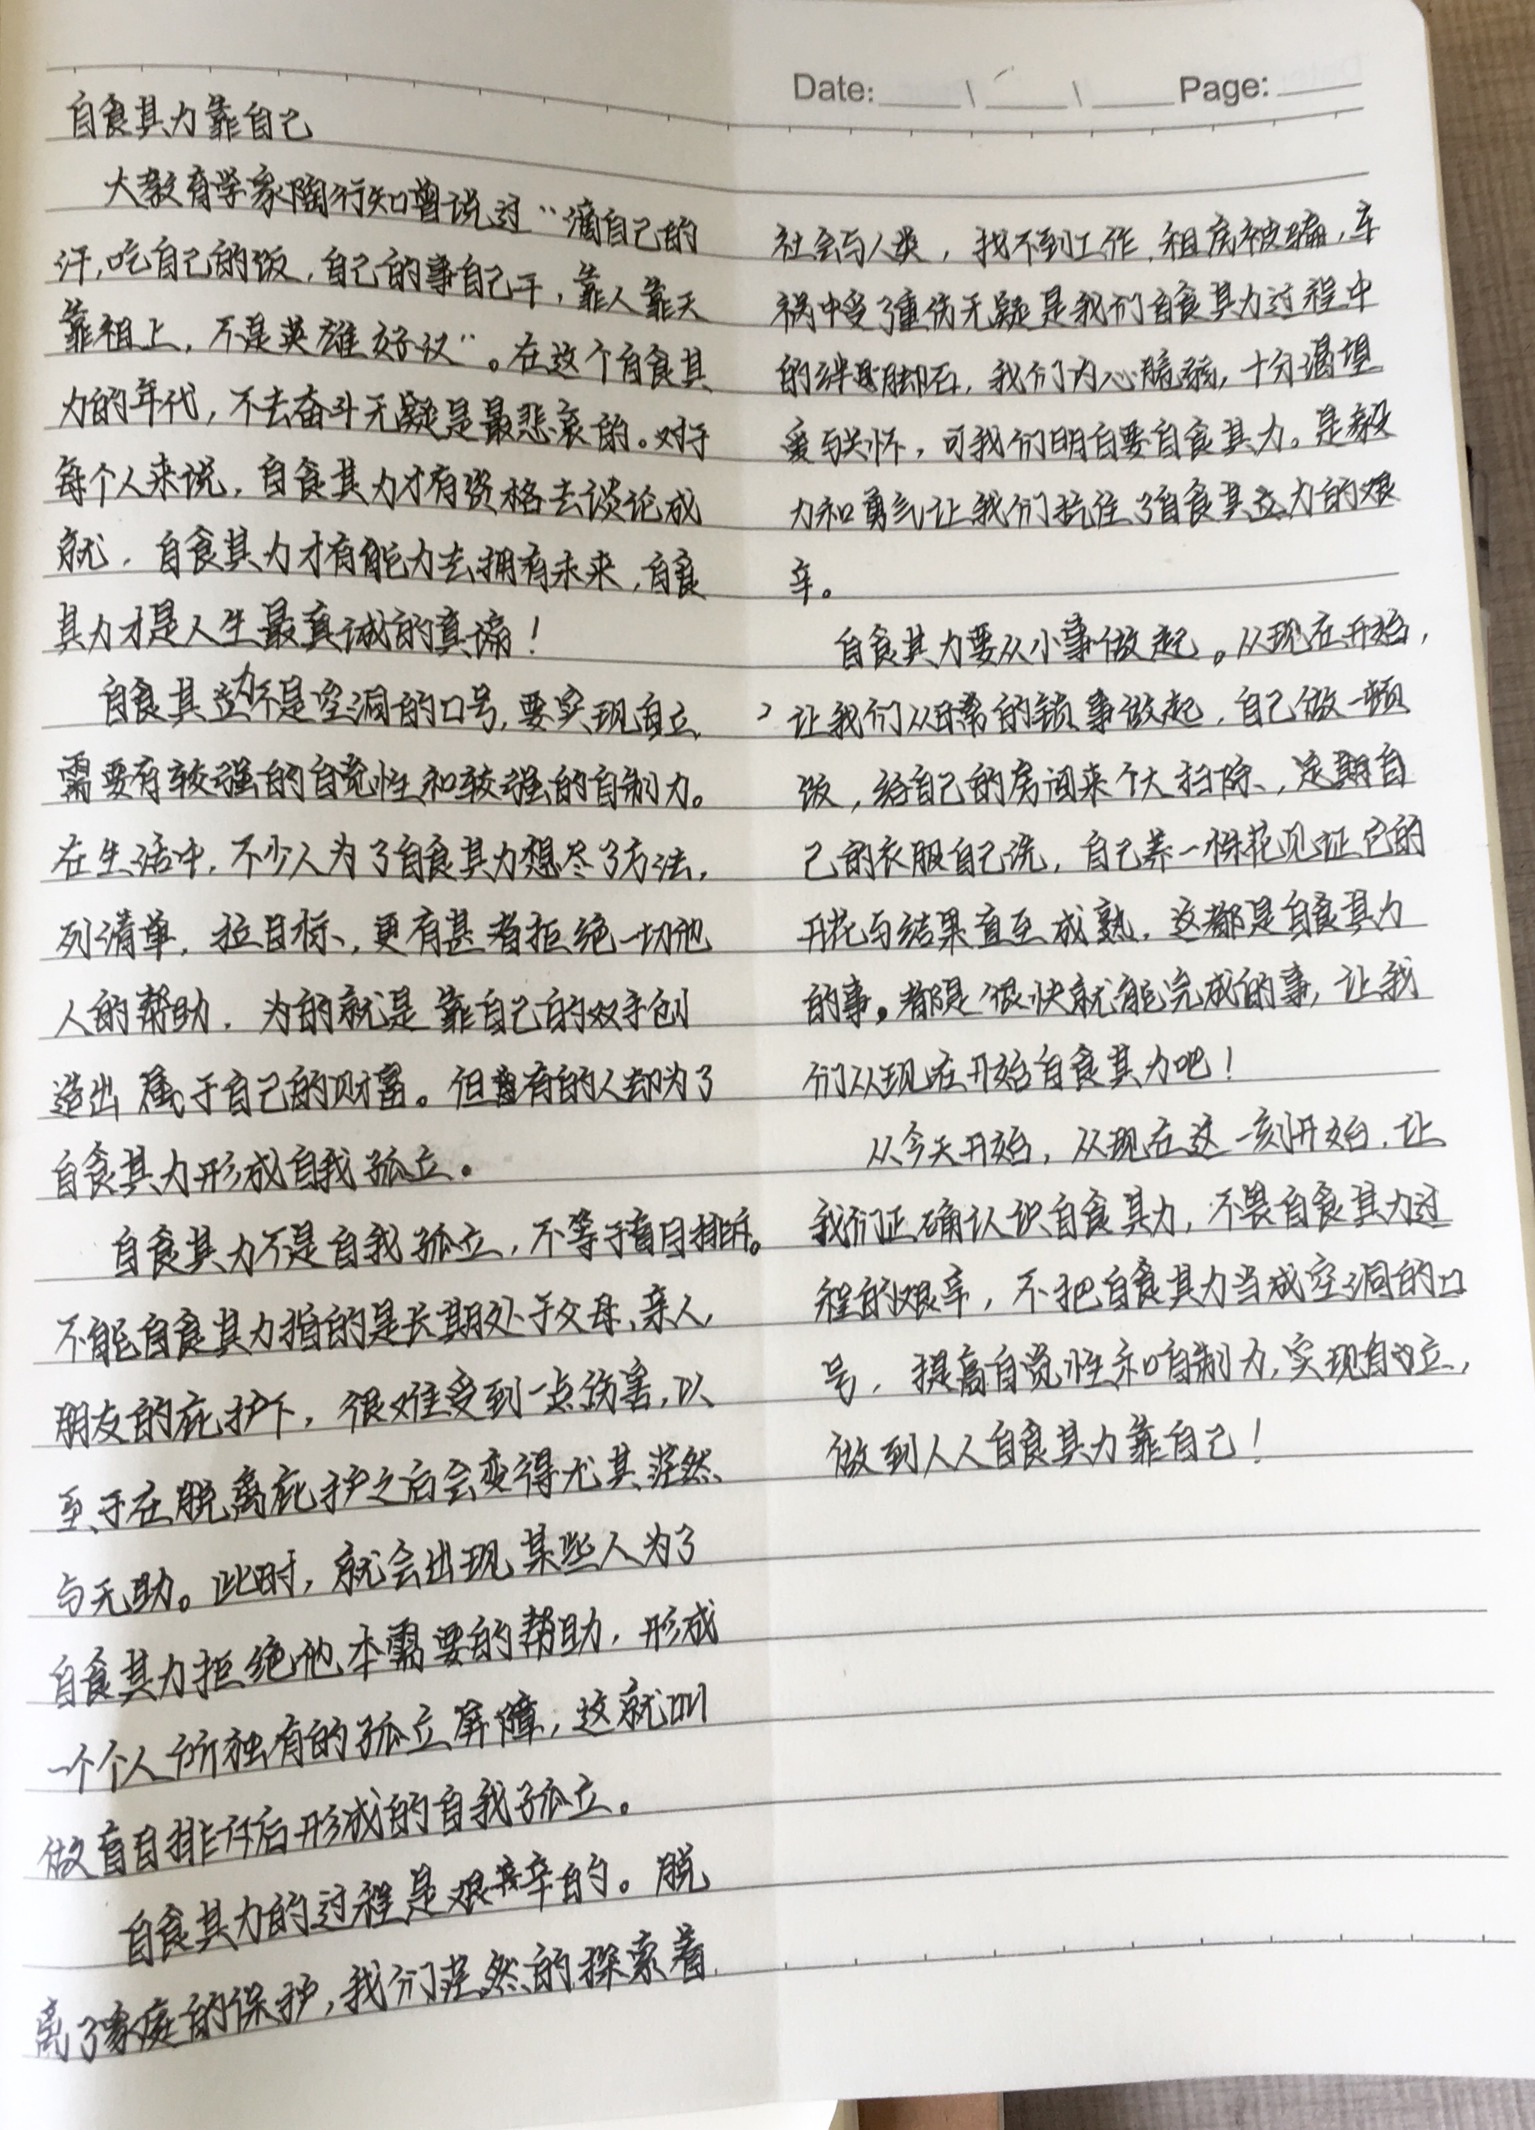 Date: \ \ Page:
自食其力靠自己
大教育学家陶行知曾说过“滴自己的
汗,吃自己的饭,自己的事自己干,靠人靠天
靠祖上,不是英雄好汉”。在这个自食其
力的年代,不去奋斗无疑是最悲哀的。对于
每个人来说,自食其力才有资格去谈论成
就,自食其力才有能力去拥有未来,自食
其力才是人生最真诚的真谛!
自食其力不是空洞的口号,要实现自立,
需要有较强的自觉性和较强的自制力。
在生活中,不少人为了自食其力想尽了方法,
列清单,拉目标、,更有甚者拒绝一切他
人的帮助,为的就是靠自己的双手创
造出属于自己的财富。但有的人却为了
自食其力形成自我孤立。
自食其力不是自我孤立,不等于盲目排斥。
不能自食其力指的是长期处于父母、亲人,
朋友的庇护下,很难受到一点伤害,以
至于在脱离庇护之后会变得尤其茫然
与无助。此时,就会出现某些人为了
自食其力拒绝他本需要的帮助,形成
一个个人所独有的孤立屏障,这就叫
做盲目排斥后形成的自我孤立。
自食其力的过程是艰辛的。脱
离了家庭的保护,我们茫然的探索着
社会与人类,找不到工作,租房被骗,车
祸中受了重伤无疑是我们自食其力过程中
的绊脚石,我们内心脆弱,十分渴望
爱与关怀,可我们明白要自食其力。是毅
力和勇气让我们抗住了自食其力的艰
辛。
自食其力要从小事做起。从现在开始,
让我们从日常的锁事做起,自己做一顿
饭,给自己的房间来个大扫除、,定期自
己的衣服自己洗,自己养一株花见证它的
开花与结果直至成熟,这都是自食其力
的事。都是很快就能完成的事,让我
们从现在开始自食其力吧!
从今天开始,从现在这一刻开始,让
我们正确认识自食其力,不畏自食其力过
程的艰辛,不把自食其力当成空洞的口
号,提高自觉性和自制力,实现自立,
做到人人自食其力靠自己!